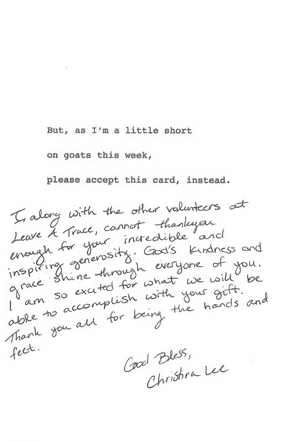 But, as I'm a little short
on goats this week,
please accept this card, instead.
I, along with the other volunteers at
Leave A Trace, cannot thankyou
enough for your incredible and
inspiring generosity. God's kindness and
grace shine through everyone of you.
I am so excited for what we will be
able to accomplish with your gift.
Thank you all for being the hands and
feet.
God Bless,
Christina Lee